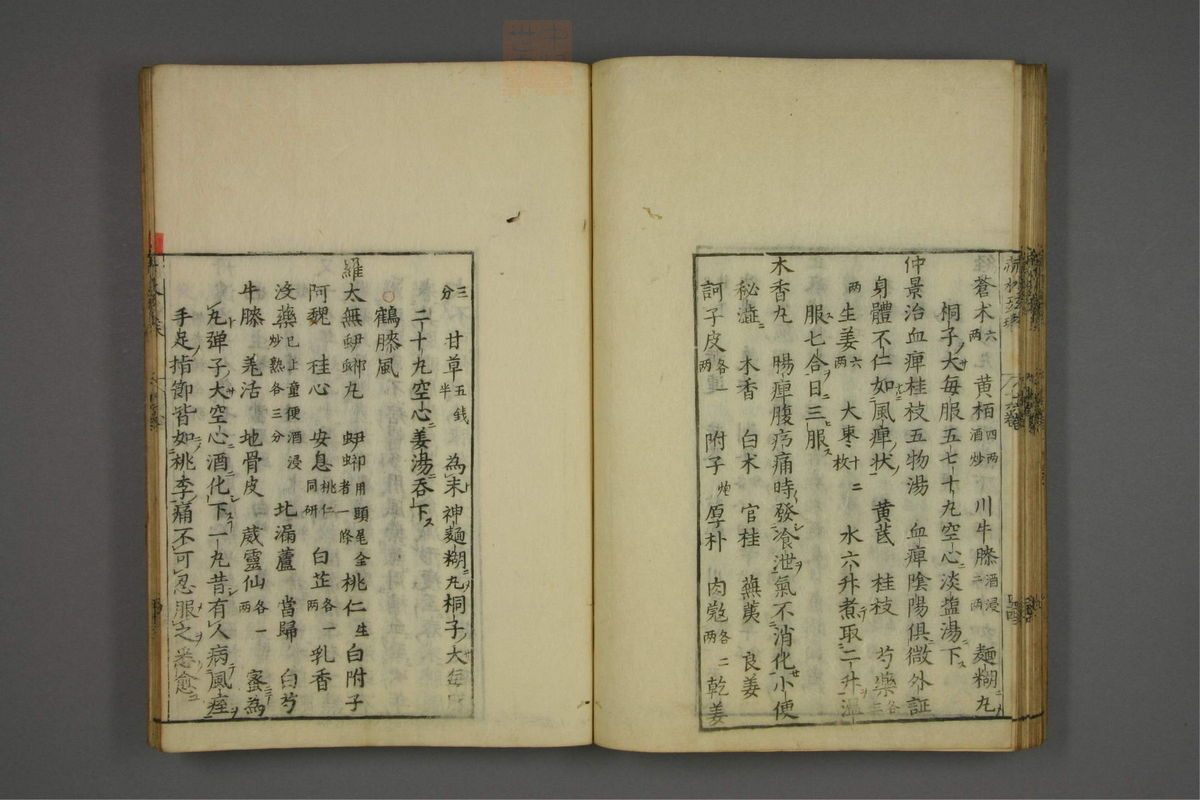 蒼朮六両 黄栢四両酒炒 川牛膝酒浸二両 麺糊丸
桐子大毎服五七十丸空心淡塩湯下
仲景治血痺桂枝五物湯 血痺陰陽俱微外証
身體不仁如風痺状 黄芪 桂枝 芍藥各三
両 生姜六両 大棗十二枚 水六升煮取二升温
服七合日三服
木香丸 腸痺腹疞痛時發飱泄氣不消化小便
秘澁 木香 白朮 官桂 蕪荑 良姜
訶子皮各両 附子炮 厚朴 肉䓻各二両 乾姜
三分 甘草五錢半 為末神麺糊丸桐子大毎
二十丸空心姜湯呑下
○鶴膝風
羅太無蚵蚾丸 蚵蚾用頭尾全者一條 桃仁生 白附子
阿魏 桂心 安息桃仁同研 白芷各一両 乳香
没藥已上童便酒浸炒熟各三分 北漏蘆 當歸 白芍
牛膝 羌活 地骨皮 葳靈仙各一両 蜜為
丸弾子大空心酒化下一丸昔有人病風痙
手足指節皆如桃李痛不可忍服之悉愈